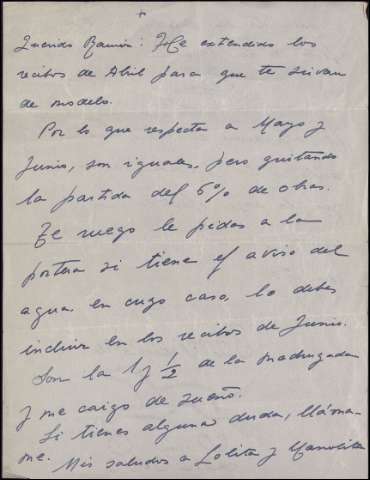 +
Querido Ramón: He extendido los
recibos de Abril para que te sirvan
de modelo.
Por lo que respecta a Mayo y
Junio, son iguales, pero quitando
la partida del 6% de obras.
Te ruego le pidas a la
portera si tiene el aviso del
agua en cuyo caso, lo debes
incluir en los recibos de Junio.
Son la 1 y 1/2 de la madrugada
y me caigo de sueño.
Si tienes alguna duda, lláma-
me. Mis saludos a Lolita y Manolita